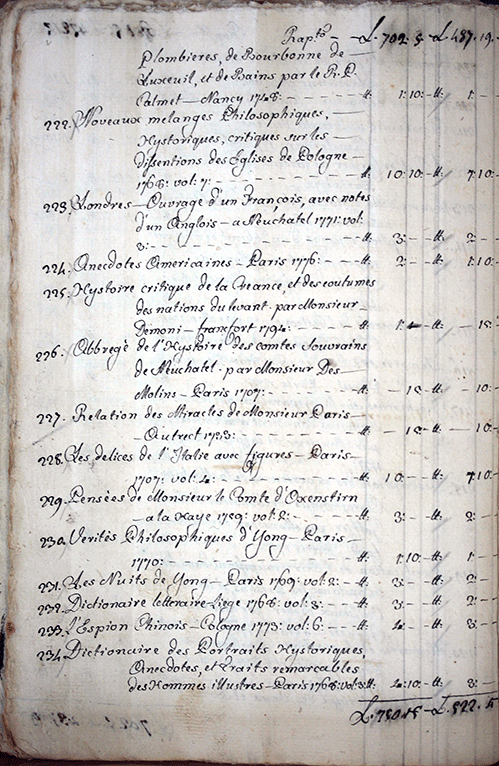 Rapto — L. 702. 5 L. 487. 19.
Plombieres, de Bourbonne de —
Luxeuil, et de Bains par le R. P.
Calmet — Nancy 1748: — — — #: 1: 10: — #: 1: —
222. Noveaux melanges Philosophiques, —
Hystoriques, critiques sur les —
Dissentions des Eglises de Pologne —
1768: vol: 7: — — — #: 10: 10: — #: 7: 10: —
223. Londres — Ouvrage d'un François, avec notes
d'un Anglois — a Neuchatel 1771: vol:
3: — — — #: 3: — #: 2: —
224. Anecdotes Americaines — Paris 1776: — — #: 2: — #: 1: 10: —
225. Hystoire critique de la Creance, et des coutumes
des nations du levant. par Monsieur —
Demoni — francfort — — — #: 1: — #: — 15:
226. Abbregé de l'Hystoire des comtes Souvrains
de Neuchatel. par Monsieur Des —
Molins — Paris 1707: — — — #: — 15 — #: — 10: —
227. Relation des Miracles de Monsieur Paris —
— Autrect 1733: — — — #: — 15 — #: — 10: —
228. Les delices de l'Italie avec figures — Paris —
1707: vol: 4: — — — #: 10: — #: 7: 10: —
229. Pensées de Monsieur le Comte d'Oxenstirn
— a la Haye 1759: vol: 2: — — — #: 3: — #: 2: —
230. Verités Philosophiques d'Yong — Paris —
1770: — — — #: 1: 10: — #: 1: —
231. Les Nuits de Yong — Paris 1769: vol: 2: — #: 3: — #: 2: —
232. Dictionaire letteraire Liege 1768: vol: 3: — #: 3: — #: 2: —
233. L'Espion Chinois — Cologne 1773: vol: 6: — #: 4: — #: 3: —
234. Dictionaire des Portraits Hystoriques,
Anecdotes, et Traits remarcables
des Hommes illustres — Paris 1768: vol: 3: #: 4: 10: — #: 3: —
L. 750 15 — L. 522. 4